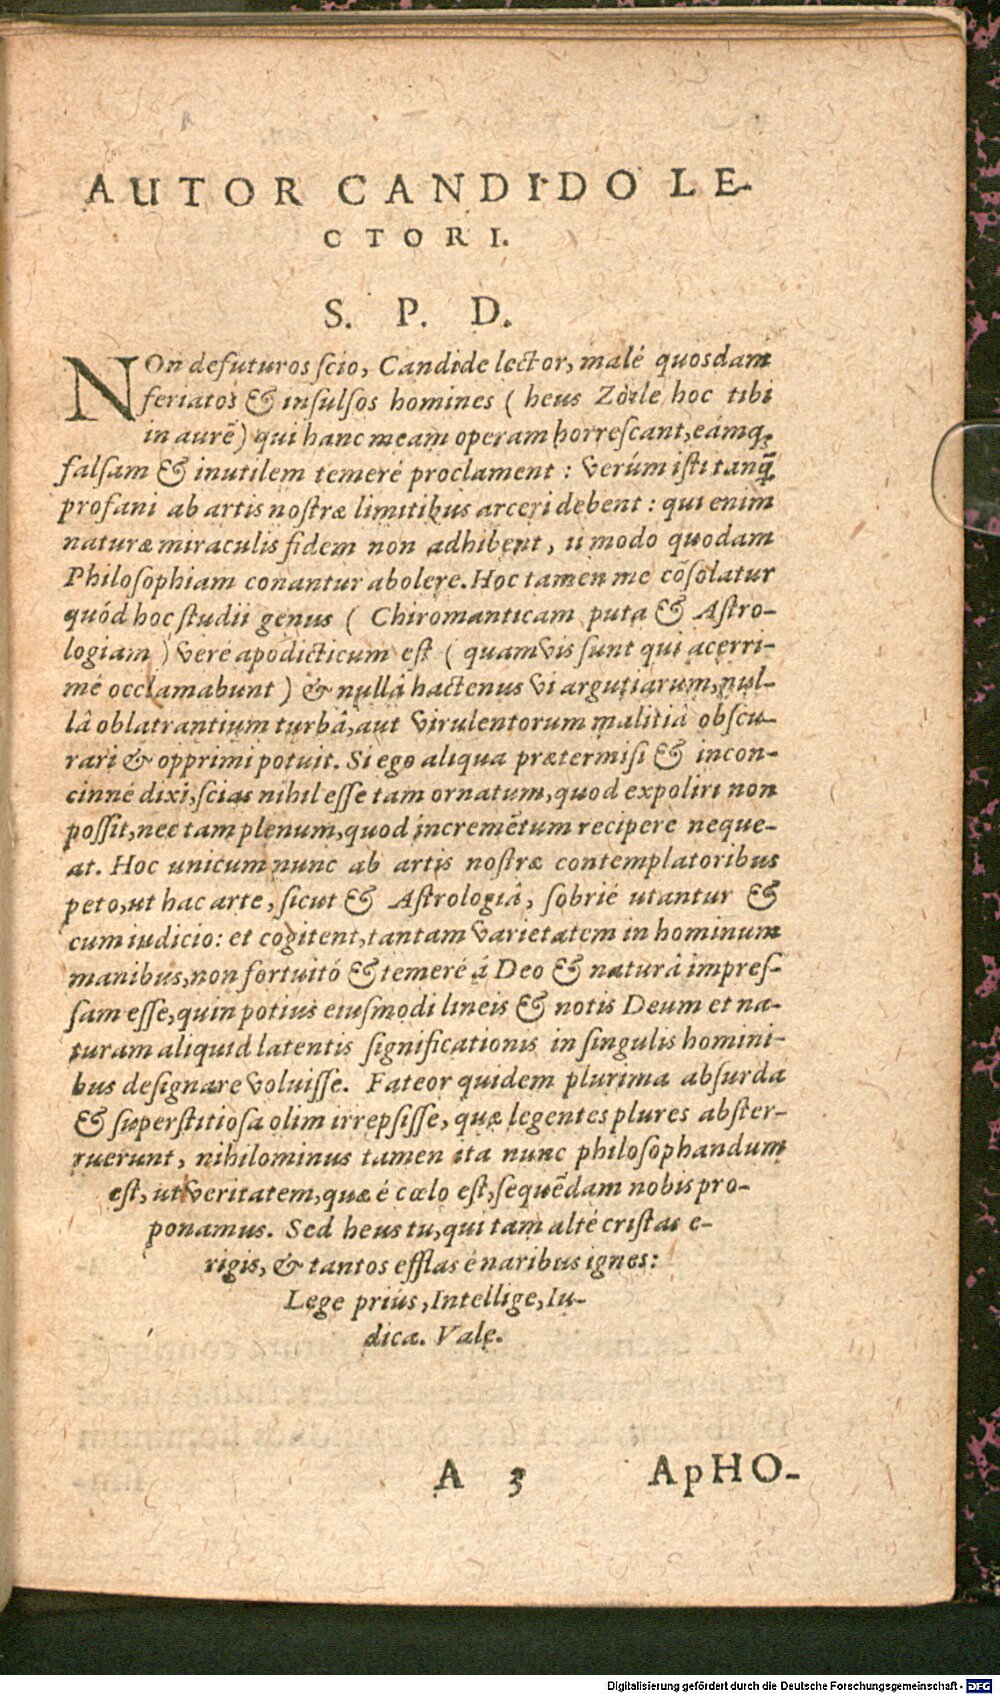 AUTOR CANDIDO LE-
CTORI.
S. P. D.
NOn defuturos scio, Candide lector, malé quosdam
feriatos & insulsos homines ( heus Zoile hoc tibi
in aurē) qui hanc meam operam horrescant, eámq;
falsam & inutilem temeré proclament : verúm isti tanq̄
profani ab artis nostræ limitibus arceri debent : qui enim
naturæ miraculis fidem non adhibent, ii modo quodam
Philosophiam conantur abolere. Hoc tamen me cōsolatur
quód hoc studii genus ( Chiromanticam puta & Astro-
logiam ) vere apodicticum est ( quamvis sunt qui acerri-
mé occlamabunt ) & nullâ hactenus vi argutiarum, nul-
lâ oblatrantium turbâ, aut virulentorum malitiâ obscu-
rari & opprimi potuit. Si ego aliqua prætermisi & incon-
cinné dixi, scias nihil esse tam ornatum, quod expoliri non
possit, nec tam plenum, quod incremētum recipere neque-
at. Hoc unicum nunc ab artis nostræ contemplatoribus
peto, ut hac arte, sicut & Astrologiâ, sobrié utantur &
cum iudicio: et cogitent, tantam varietatem in hominum
manibus, non fortuitó & temeré á Deo & naturâ impres-
sam esse, quin potius eiusmodi lineis & notis Deum et na-
turam aliquid latentis significationis in singulis homini-
bus designare voluisse. Fateor quidem plurima absurda
& superstitiosa olim irrepsisse, quæ legentes plures abster-
ruerunt, nihilominus tamen ita nunc philosophandum
est, ut veritatem, quæ é cœlo est, sequēdam nobis pro-
ponamus. Sed heus tu, qui tam alté cristas e-
rigis, & tantos efflas é naribus ignes:
Lege priús, Intellige, Iu-
dica. Vale.
A 3 ApHO-
Digitalisierung gefördert durch die Deutsche Forschungsgemeinschaft - DFG